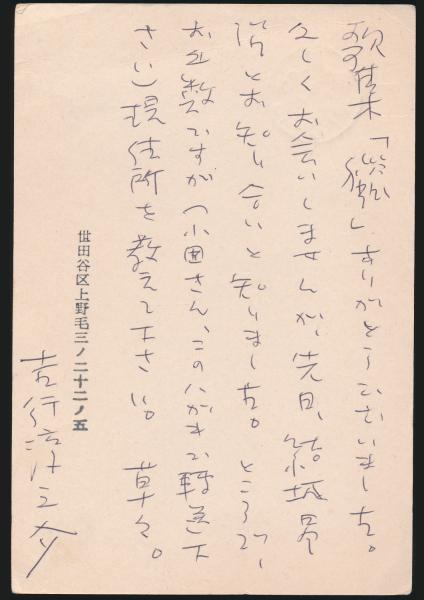 歌集「縄」ありがとうございました。
久しくお会いしませんが、先日、結城昌
治とお知り合いと知りました。ところで、
お手数ですが（小田さん、このハガキ御転送下
さい）現住所を教えて下さい。草々。
世田谷区上野毛三ノ二十二ノ五
吉行淳之介